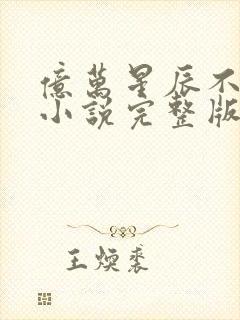 億萬星辰不
小說完整版
王煥裘